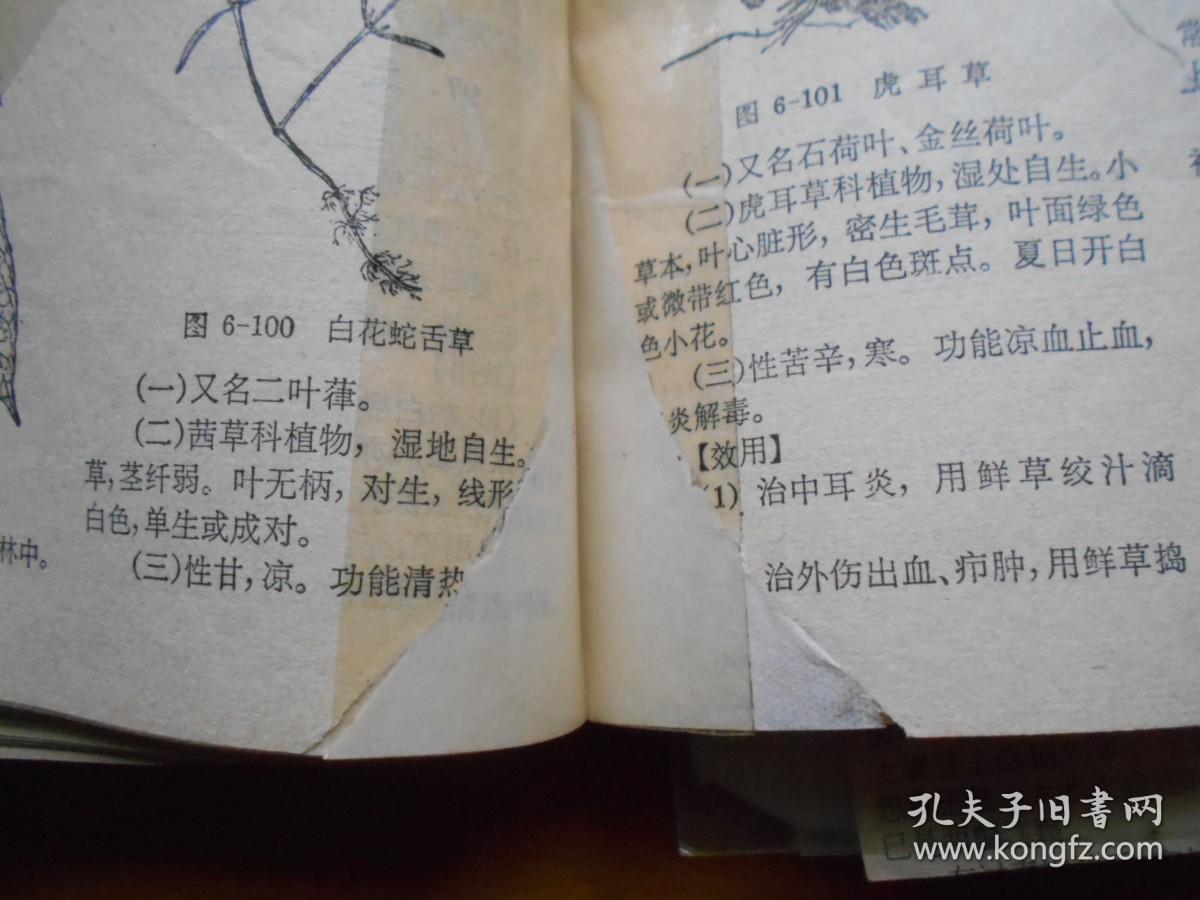 图 6-100 白花蛇舌草
(一)又名二叶葎。
(二)茜草科植物，湿地自生。
草,茎纤弱。叶无柄，对生，线形
白色,单生或成对。
(三)性甘,凉。功能清热
林中。
图 6-101 虎耳草
(一)又名石荷叶、金丝荷叶。
(二)虎耳草科植物,湿处自生。小
草本,叶心脏形，密生毛茸，叶面绿色
或微带红色，有白色斑点。夏日开白
色小花。
(三)性苦辛,寒。功能凉血止血,
炎解毒。
【效用】
(1) 治中耳炎，用鲜草绞汁滴
治外伤出血、疖肿,用鲜草捣
孔夫子旧书网
www.kongfz.com